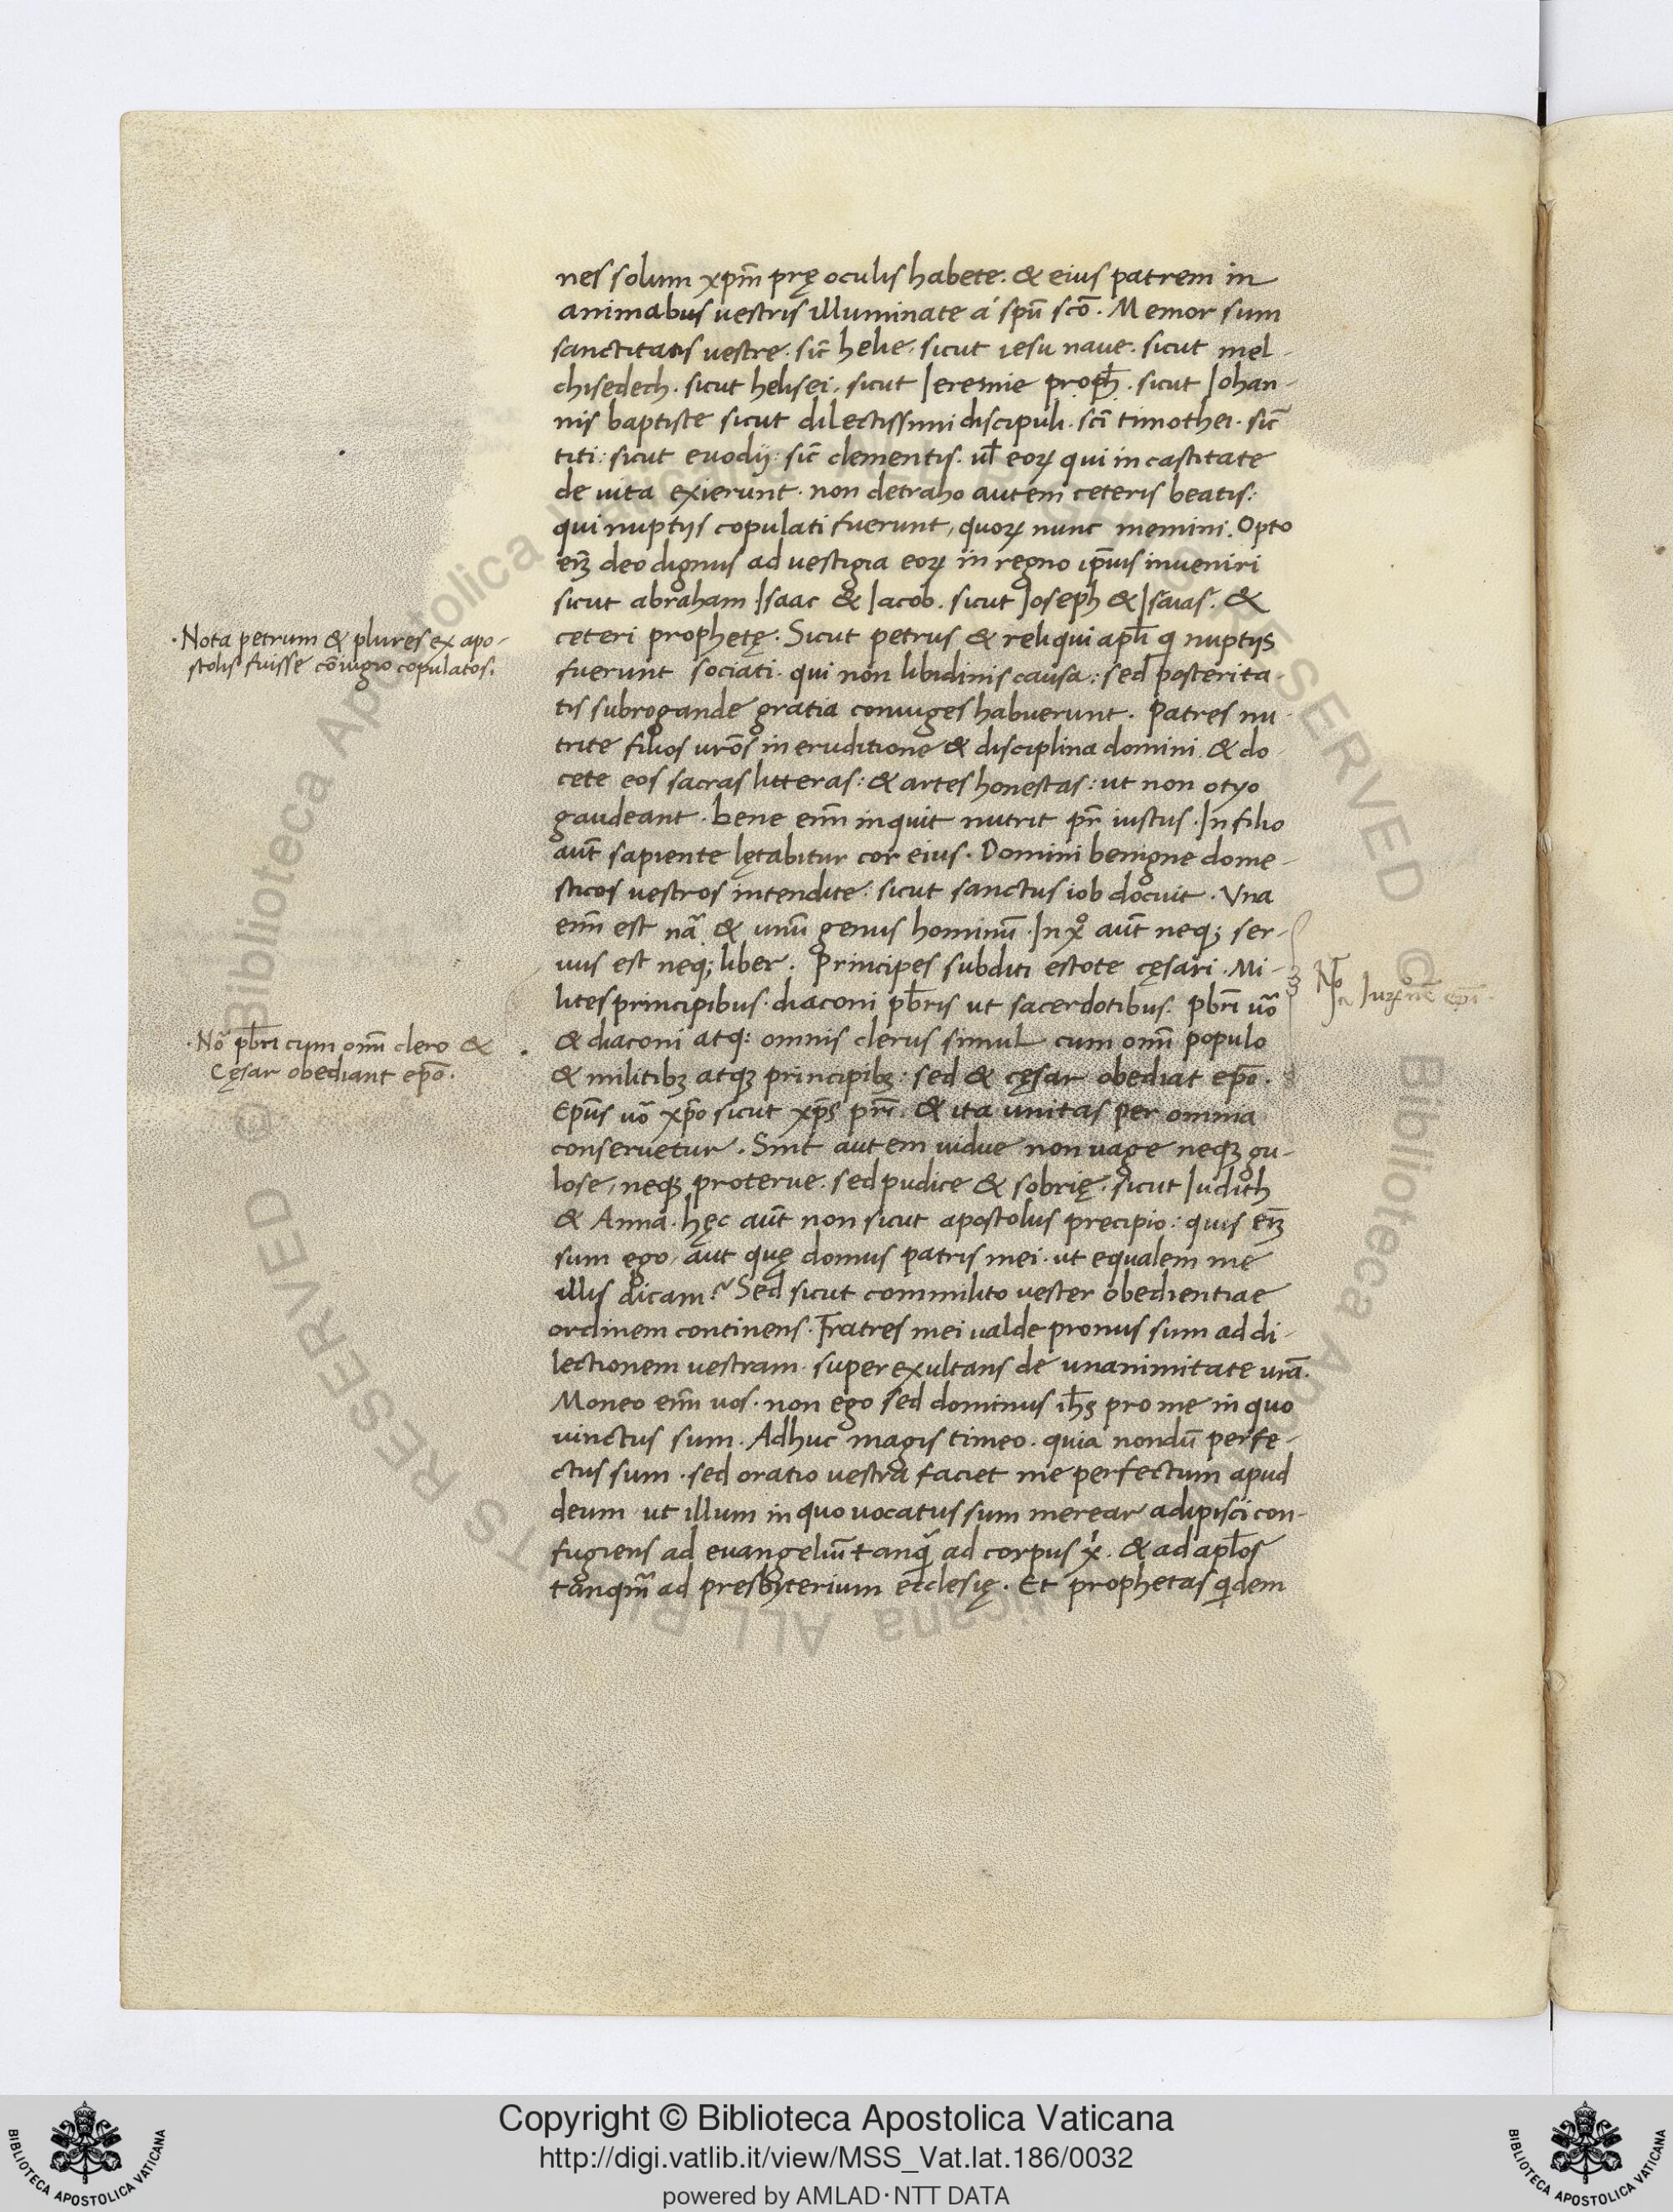 nes solum xp̄m prę oculis habete. & eius patrem in
animabus vestris illuminate á sp̄u sc̄o. Memor sum
sanctitatis vestre. sic̄ helie. sicut iesu naue. sicut mel-
chisedech. sicut helisei. sicut Ieremie proph̄. sicut Iohan-
nis baptiste sicut dilectissimi discipuli. sc̄i timothei. sic̄
titi: sicut euodij: sic̄ clementis. ul̄ eoꝝ qui in castitate
de uita exierunt. non detraho autem ceteris beatis:
qui nuptijs copulati fuerunt, quoꝝ nunc memini. Opto
eīꝫ deo dignus ad vestigia eoꝝ in regno ip̄ius inueniri
sicut abraham Isaac & Iacob. sicut Ioseph & Isaias. &
ceteri prophetę. Sicut petrus & reliqui apl̄i q nuptijs
fuerunt sociati. qui non libidinis causa: sed posterita-
tis subrogande gratia coniuges habuerunt. Patres nu-
trite filios ur̄os in eruditione & disciplina domini. & do-
cete eos sacras litteras: & artes honestas: ut non otyo
gaudeant. bene eni̅m inquit nutrit pr̄ iustus. In filio
aut̄ sapiente lętabitur cor eius. Domini benigne dome-
sticos vestros intendite: sicut sanctus iob docuit. Vna
eni̅m est nā. & unū genus hominū. In xo aut̄ neqꝫ ser-
uus est neqꝫ liber. Principes subditi estote cęsari. Mi-
lites principibus. diaconi pb̄ris ut sacerdotibus. pb̄ri uō
& diaconi atqꝫ omnis clerus simul cum omi̅ populo
& militibꝫ atqꝫ principibꝫ: sed & cęsar obediat ep̄o.
Ep̄us uō xp̄o sicut xp̄s pr̄i. & ita unitas per omnia
conseruetur. Sint autem uidue non uage neqꝫ gu-
lose, neqꝫ proterue. sed pudice & sobrię. sicut Iudith
& Anna. hęc aut̄ non sicut apostolus precipio: quis eīꝫ
sum ego, aut quę domus patris mei. ut equalem me
illis dicam? Sed sicut commilito uester obedientiae
ordinem continens. Fratres mei ualde pronus sum ad di-
lectionem vestram. superexultans de unanimitate ur̄a.
Moneo eni̅m uos. non ego sed dominus ih̄s pro me in quo
uinctus sum. Adhuc magis timeo. quia nondū perfe-
ctus sum. sed oratio vestra faciet me perfectum apud
deum ut illum in quo uocatus sum merear adipisci con-
fugiens ad euangeliū tanq̄ ad corpus xi. & ad apl̄os
tanqm̄ ad presbyterium ecclesię. Et prophetas qidem
·Nota petrum & plures ex apo-
stolis fuisse cōiugio copulatos.
·Nō pb̄ri cum omi̅ clero &
Cęsar obediant ep̄o.
Copyright © Biblioteca Apostolica Vaticana
http://digi.vatlib.it/view/MSS_Vat.lat.186/0032
powered by AMLAD·NTT DATA
BIBLIOTECA APOSTOLICA VATICANA
BIBLIOTECA APOSTOLICA VATICANA